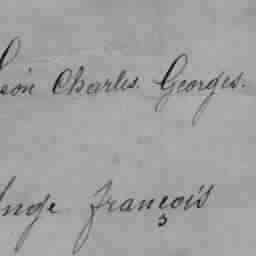 Léon Charles Georges.
Ange François